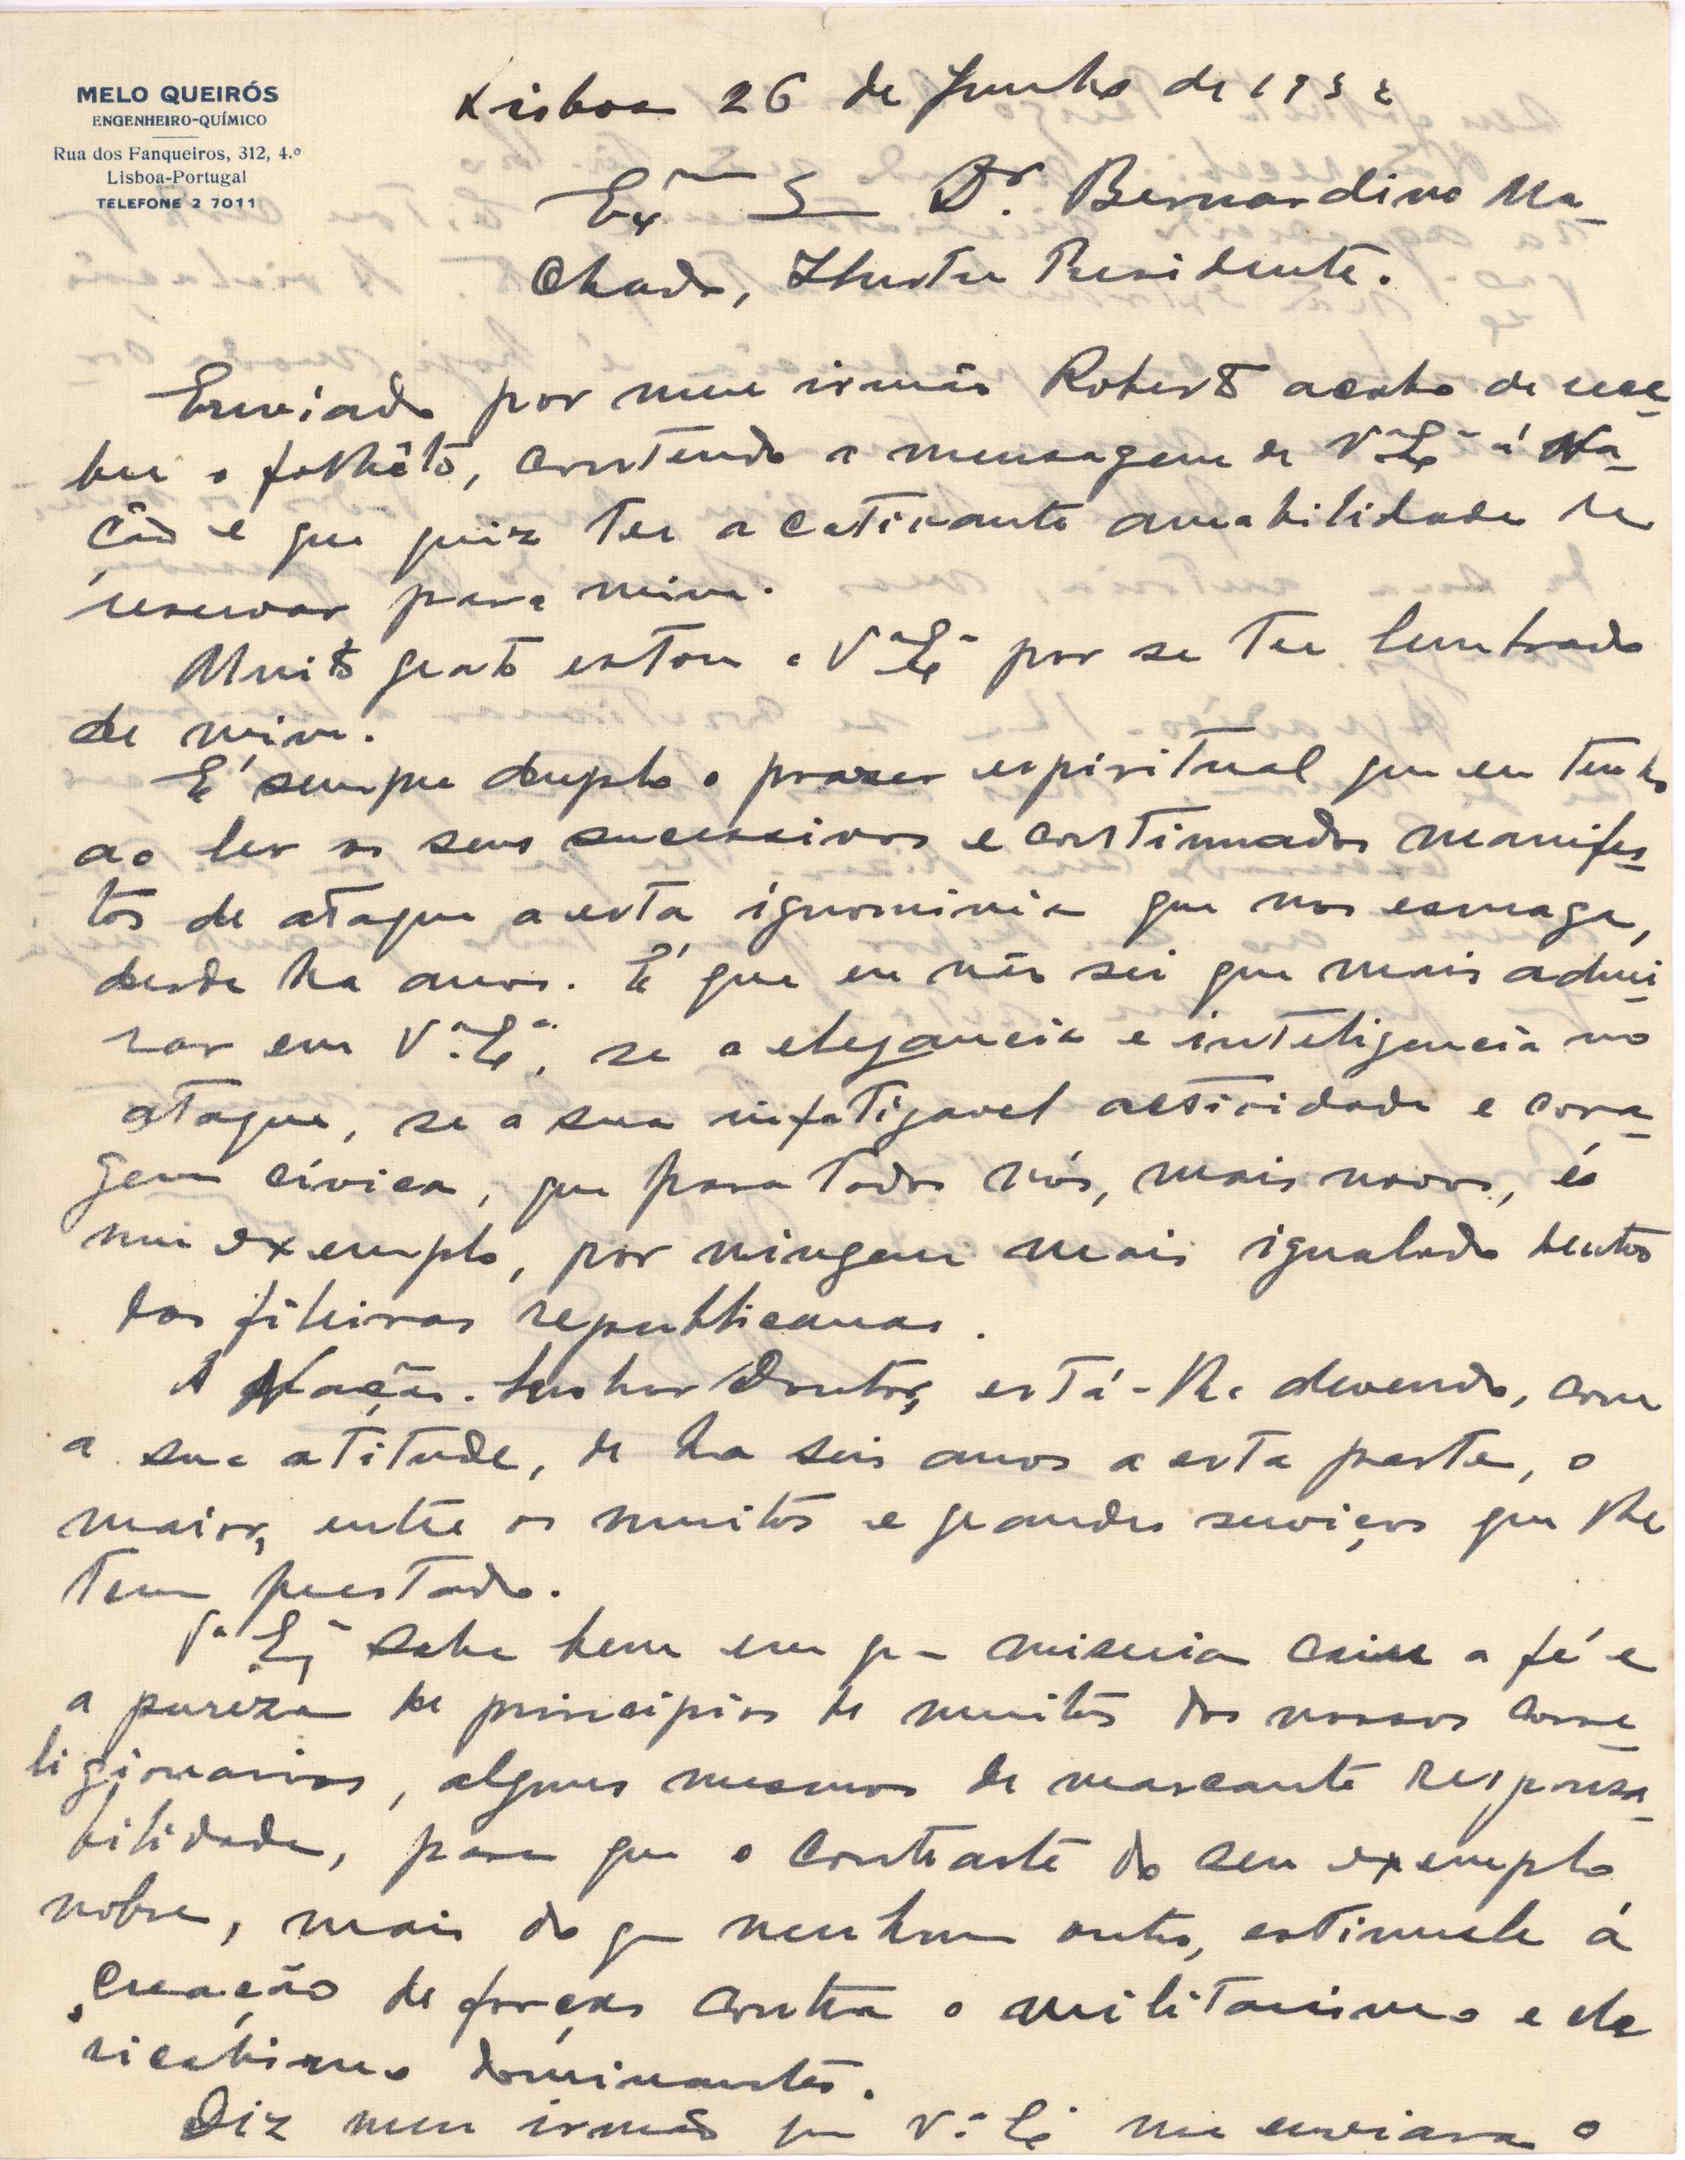 MELO QUEIRÓS
ENGENHEIRO-QUÍMICO
Rua dos Fanqueiros, 312, 4.º
Lisboa-Portugal
TELEFONE 2 7011
Lisboa 26 de Junho de 1932
Exmo Sr Dr. Bernardino Ma-
chado, Ilustre Presidente.
Enviado por meu irmão Roberto acabo de rece-
ber o folhêto, contendo a mensagem de V.ª Exª á Na-
ção e que quiz ter a cativante amabilidade de
reservar para mim.
Muito grato estou a V.ª Exª por se ter lembrado
de mim.
E' sempre duplo o prazer espiritual que eu tenho
ao ler os seus sucessivos e continuados manifes-
tos de ataque a esta ignominia que nos esmaga,
desde ha anos. E' que eu não sei que mais admi-
rar em V.ª Exª, se a elegancia e inteligencia no
ataque, se a sua infatigavel actividade e cora-
gem cívica, que para todos nós, mais novos, é
um exemplo, por ninguem mais igualado dentro
das fileiras republicanas.
A Nação. Senhor Doutor, está-lhe devendo, com
a sua atitude, de ha seis anos a esta parte, o
maior, entre os muitos e grandes serviços que lhe
tem prestado.
V.ª Exª sabe bem em que miseria caiu a fé e
a pureza de principios de muitos dos nossos corre-
ligionarios, alguns mesmos de marcante responsa-
bilidade, para que o contraste do seu exemplo
nobre, mais do que nenhum outro, estimule á
creação de forças contra o militarismo e cle
ricalismo dominantes.
Diz meu irmão que V.ª Exª me enviara o